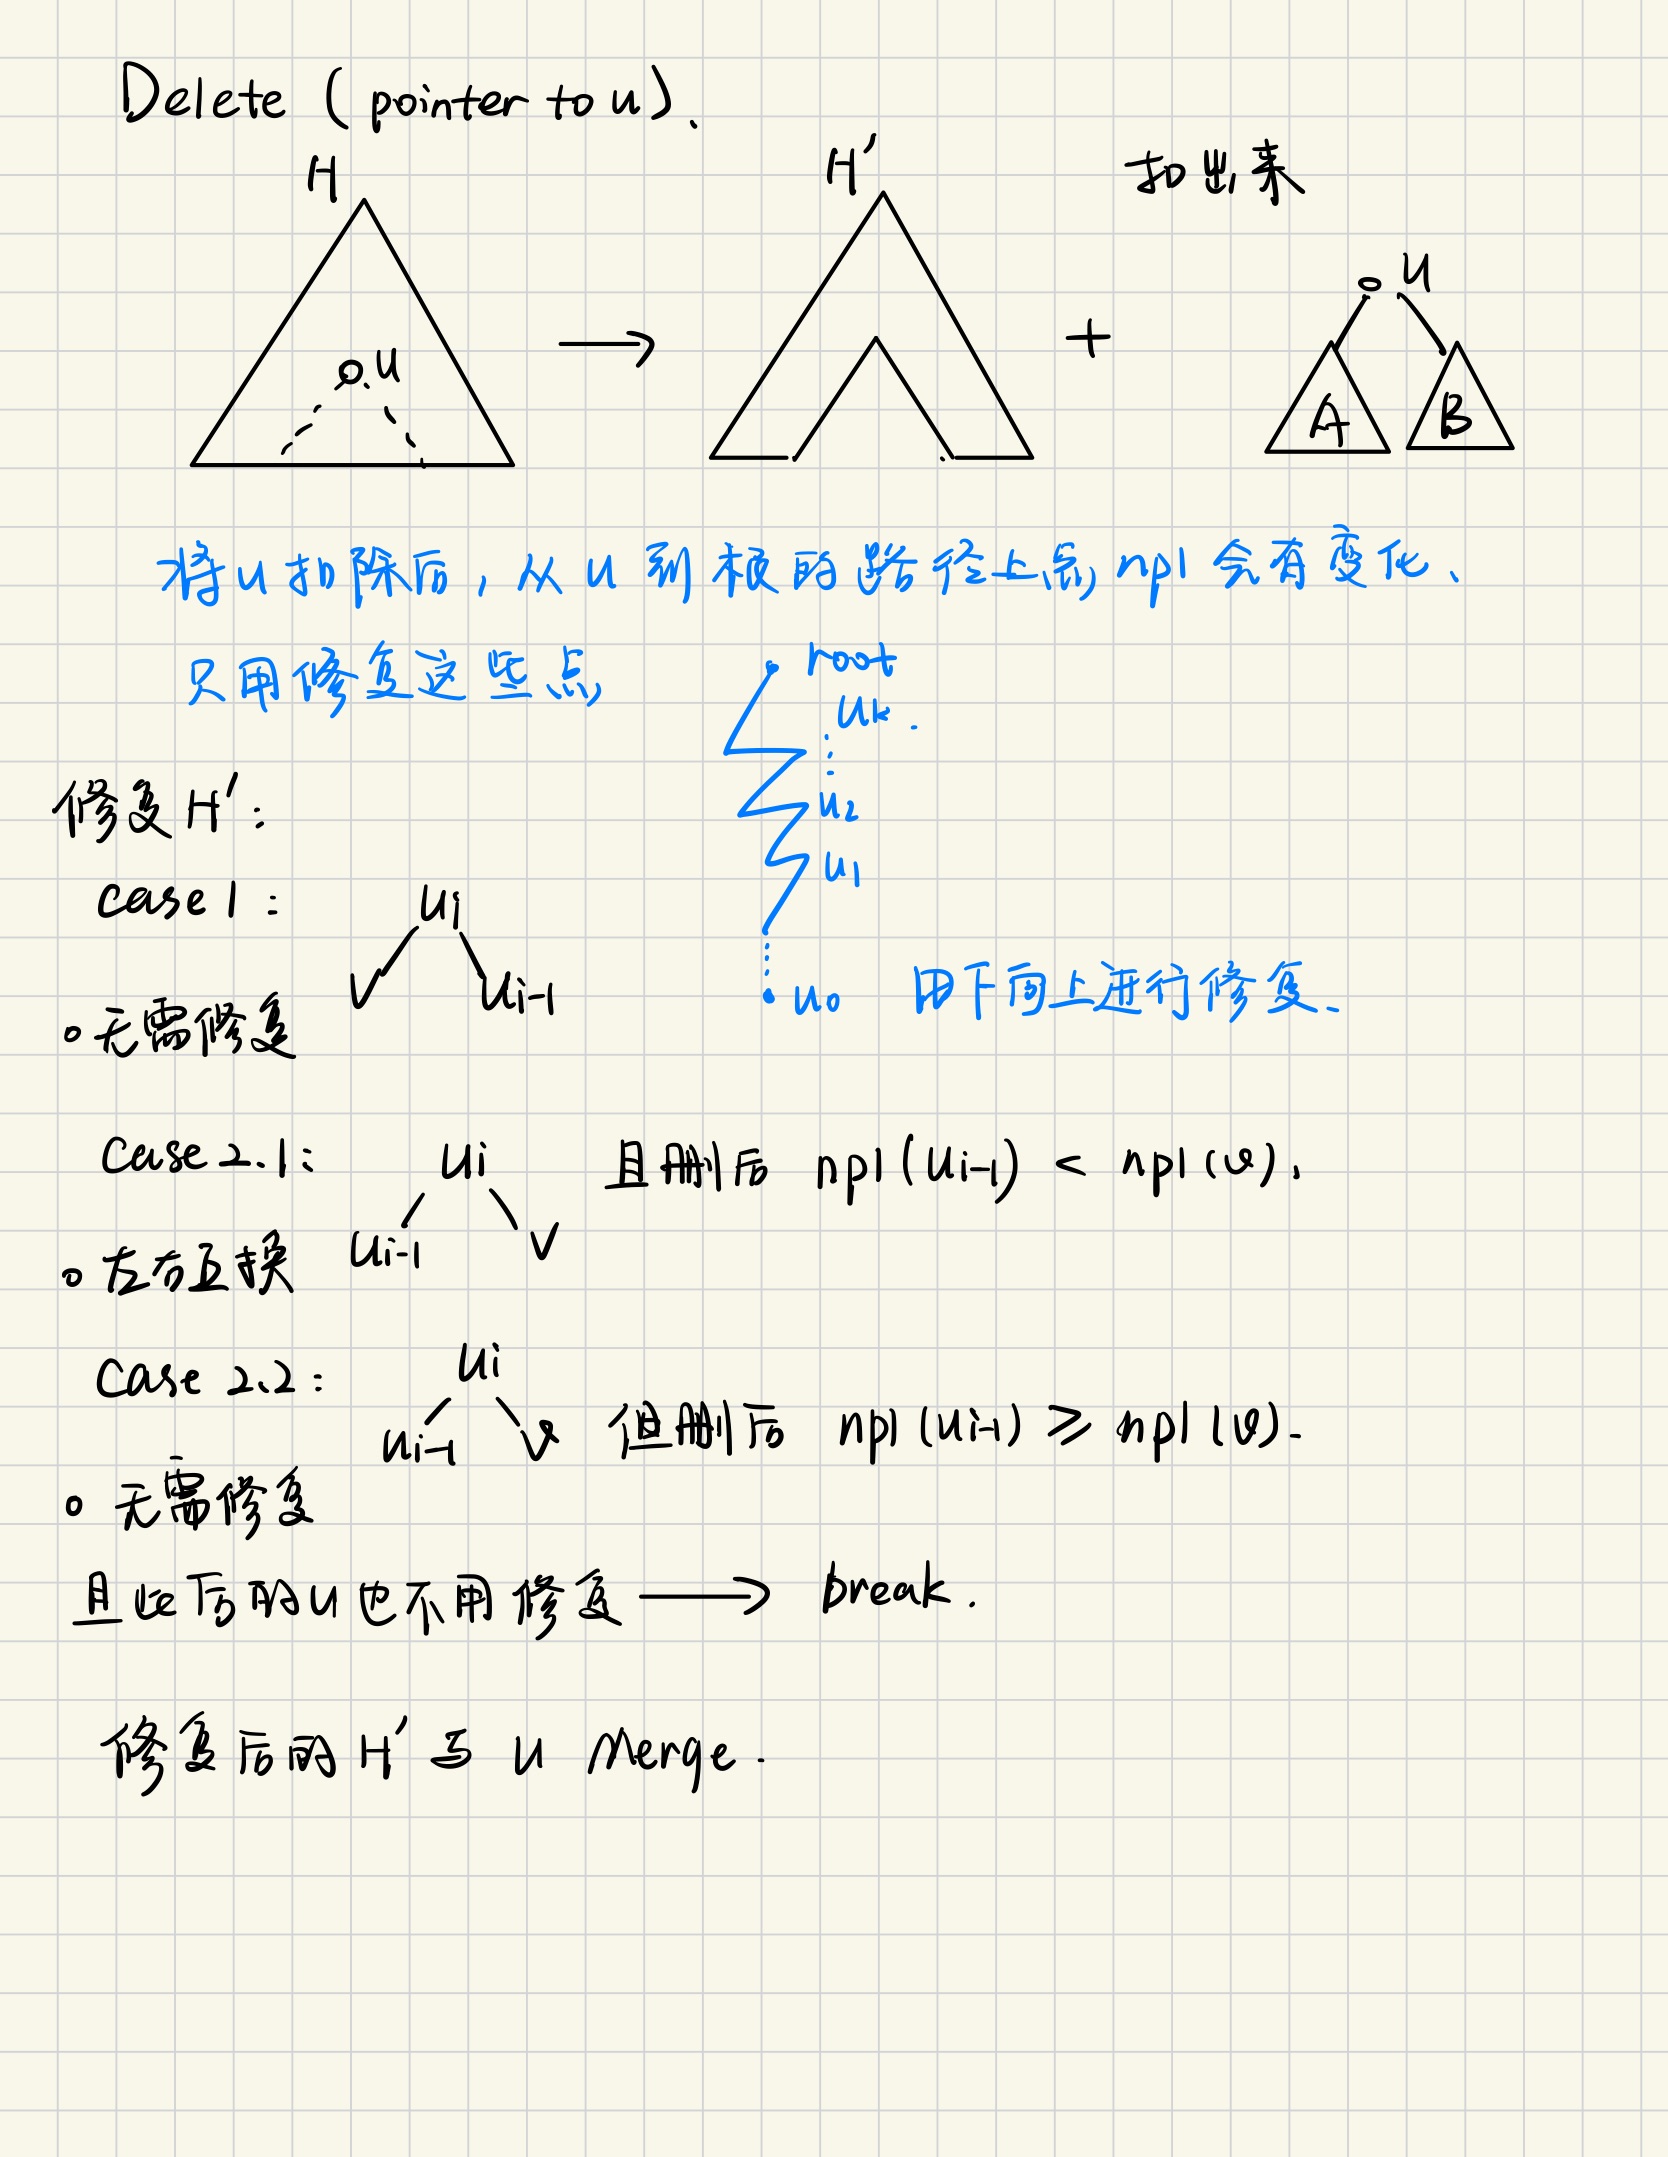 Delete (pointer to u).
H
H'
扣出来
u
→
+
u
A
B
将u扣除后,从u到根的路径上点npl会有变化、
只用修复这些点
root
uk.
⋮
u2
u1
u0
由下向上进行修复.
修复H':
case1:
ui
v
ui-1
○无需修复
case2.1:
ui
且删后 npl(ui-1) < npl(v).
ui-1
v
○左右互换
case 2.2:
ui
ui-1
v
但删后 npl(ui-1) ≥ npl(v).
○无需修复
且此后的u也不用修复 → break.
修复后的H'与 u Merge.